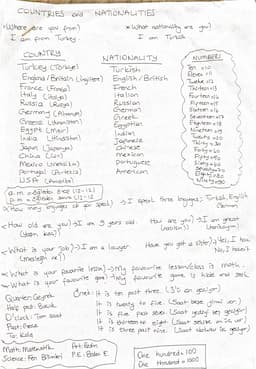 COUNTRIES and NATIONALITIES
Where are you from?
I am from Turkey.
What nationality are you?
I am Turkish
COUNTRY
Turkey (Türkiye)
England / Britain (İngiltere)
France (Fransa)
Italy (İtalya)
Russia (Rusya)
Germany (Almanya)
Greece (Yunanistan)
Egypt (Mısır)
India (Hindistan)
Japan (Japonya)
China (Çin)
Mexico (Meksika)
Portugal (Portekiz)
USA (Amerika)
NATIONALITY
Turkish
English / British
French
Italian
Russian
German
Greek
Egyptian
Indian
Japanese
Chinese
Mexican
Portuguese
American
NUMBERS
Ten = 10
Eleven = 11
Twelve = 12
Thirteen = 13
Fourteen = 14
Fifteen = 15
Sixteen = 16
Seventeen = 17
Eighteen = 18
Nineteen = 19
Twenty = 20
Thirty = 30
Forty = 40
Fifty = 50
Sixty = 60
Seventy = 70
Eighty = 80
Ninety = 90
a.m. =
p.m. =
How many languages can you speak? → I speak three languages; Turkish, English
How old are you? → I am 9 years old.
(kaç yaş)
How are you? → I am great
(nasılsın)
What is your job? → I am a lawyer
(mesleğin ne)
Have you got a sister? Yes, I have
No, I haven't
What is your favourite lesson? → My favourite lesson/class is math.
What is your favourite game? → My favourite game is hide and seek
Quarter: Çeyrek
Half past: Buçuk
O'clock: Tam saat
Past: Geçe
To: Kala
Örnek: It is ten past three. (3'ü on geçiyor)
It is twenty to five.
It is five past seven.
It is thirteen to eight
It is three past nine.
Math: Matematik
Science: Fen Bilimleri
Art: Resim
P.E.: Beden E.
One hundred = 100
One thousand = 1000